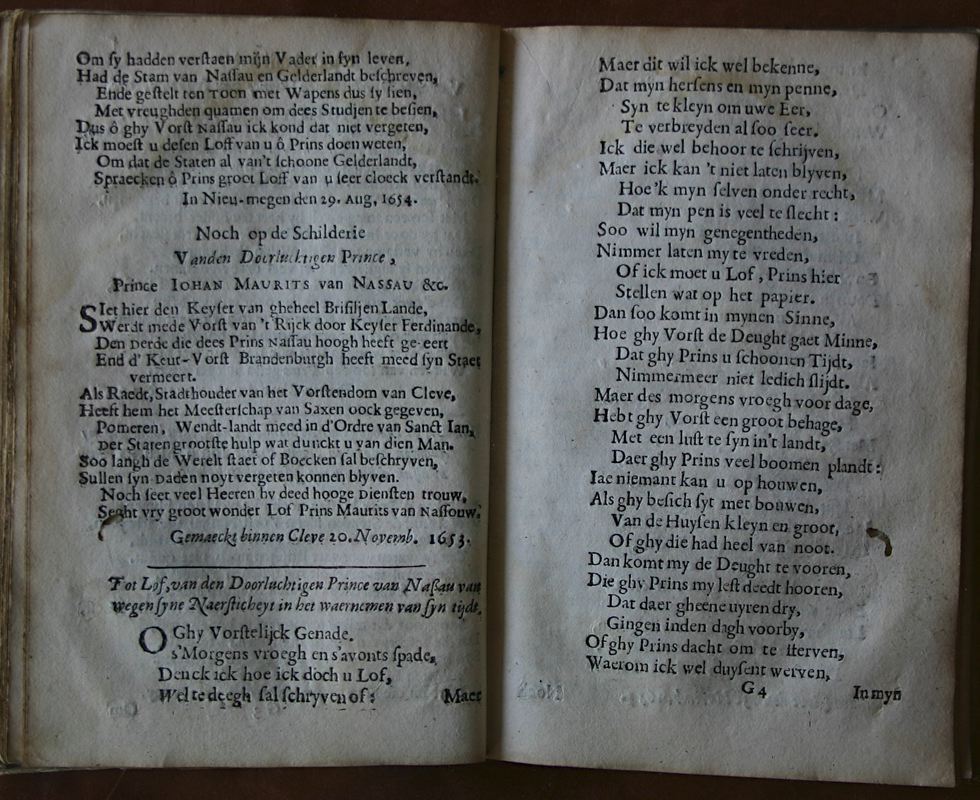 Om sy hadden verstaen mijn Vader in syn leven,
Had de Stam van Nassau en Gelderlandt beschreven,
Ende gestelt ten Toon met Wapens dus sy sien,
Met vreughden quamen om dees Studjen te besien,
Dus ô ghy Vorst Nassau ick kond dat niet vergeten,
Ick moest u desen Loff van u ô Prins doen weten,
Om dat de Staten al van't schoone Gelderlandt,
Spraecken ô Prins groot Loff van u seer cloeck verstandt.
In Nieu-megen den 29. Aug, 1654.
Noch op de Schilderie
Vanden Doerluchtigen Prince,
Prince IOHAN MAURITS van NASSAU &c.
SIet hier den Keyser van gheheel Brisiljen Lande,
Werdt mede Vorst van 't Rijck door Keyser Ferdinande,
Den Derde die dees Prins Nassau hoogh heeft ge-eert
End d' Keur-Vorst Brandenburgh heeft meed syn Staet
vermeert.
Als Raedt, Stadthouder van het Vorstendom van Cleve,
Heeft hem het Meesterschap van Saxen oock gegeven,
Pomeren, Wendt-landt meed in d'Ordre van Sanct Ian,
Der Staten grootste hulp wat dunckt u van dien Man.
Soo langh de Werelt staet of Boecken sal beschryven,
Sullen syn Daden noyt vergeten konnen blyven.
Noch seer veel Heeren hy deed hooge Diensten trouw,
Seght vry groot wonder Lof Prins Maurits van Nassouw.
Gemaeckt binnen Cleve 20. Novemb. 1653.
Tot Lof, van den Doorluchtigen Prince van Nassau van
wegen syne Naersticheyt in het waernemen van syn tijdt,
O Ghy Vorstelijck Genade.
s'Morgens vroegh en s'avonts spade,
Denck ick hoe ick doch u Lof,
Wel te deegh sal schryven of:
Maer
Maer dit wil ick wel bekenne,
Dat myn hersens en myn penne,
Syn te kleyn om uwe Eer,
Te verbreyden al soo seer.
Ick die wel behoor te schrijven,
Maer ick kan 't niet laten blyven,
Hoe 'k myn selven onder recht,
Dat myn pen is veel te slecht:
Soo wil myn genegentheden,
Nimmer laten my te vreden,
Of ick moet u Lof, Prins hier
Stellen wat op het papier.
Dan soo komt in mynen Sinne,
Hoe ghy Vorst de Deught gaet Minne,
Dat ghy Prins u schoonen Tijdt,
Nimmermeer niet ledich slijdt.
Maer des morgens vroegh voor dage,
Hebt ghy Vorst een groot behage,
Met een lust te syn in't landt,
Daer ghy Prins veel boomen plandt:
Iae niemant kan u op houwen,
Als ghy besich syt met bouwen,
Van de Huysen kleyn en groot,
Of ghy die had heel van noot.
Dan komt my de Deught te vooren,
Die ghy Prins my lest deedt hooren,
Dat daer gheene uyren dry,
Gingen inden dagh voorby,
Of ghy Prins dacht om te sterven,
Waerom ick wel duysent werven,
G 4
In myn